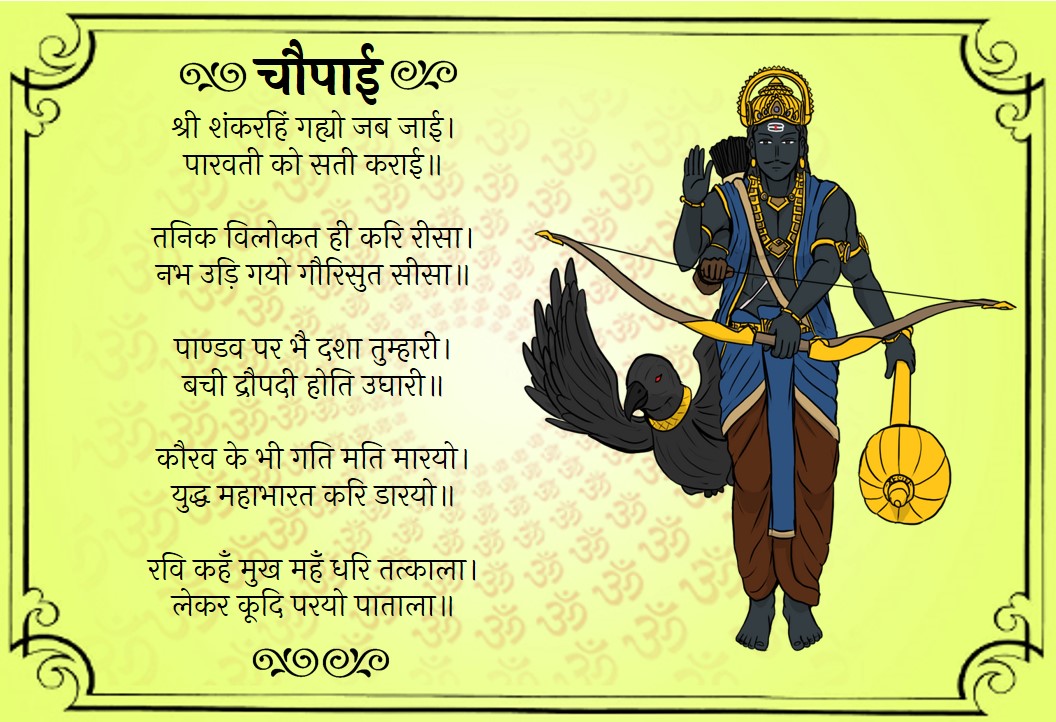 चौपाई
श्री शंकरहिं गह्यो जब जाई।
पारवती को सती कराई॥
तनिक विलोकत ही करि रीसा।
नभ उड़ि गयो गौरिसुत सीसा॥
पाण्डव पर भै दशा तुम्हारी।
बची द्रौपदी होति उघारी॥
कौरव के भी गति मति मारयो।
युद्ध महाभारत करि डारयो॥
रवि कहँ मुख महँ धरि तत्काला।
लेकर कूदि परयो पाताला॥